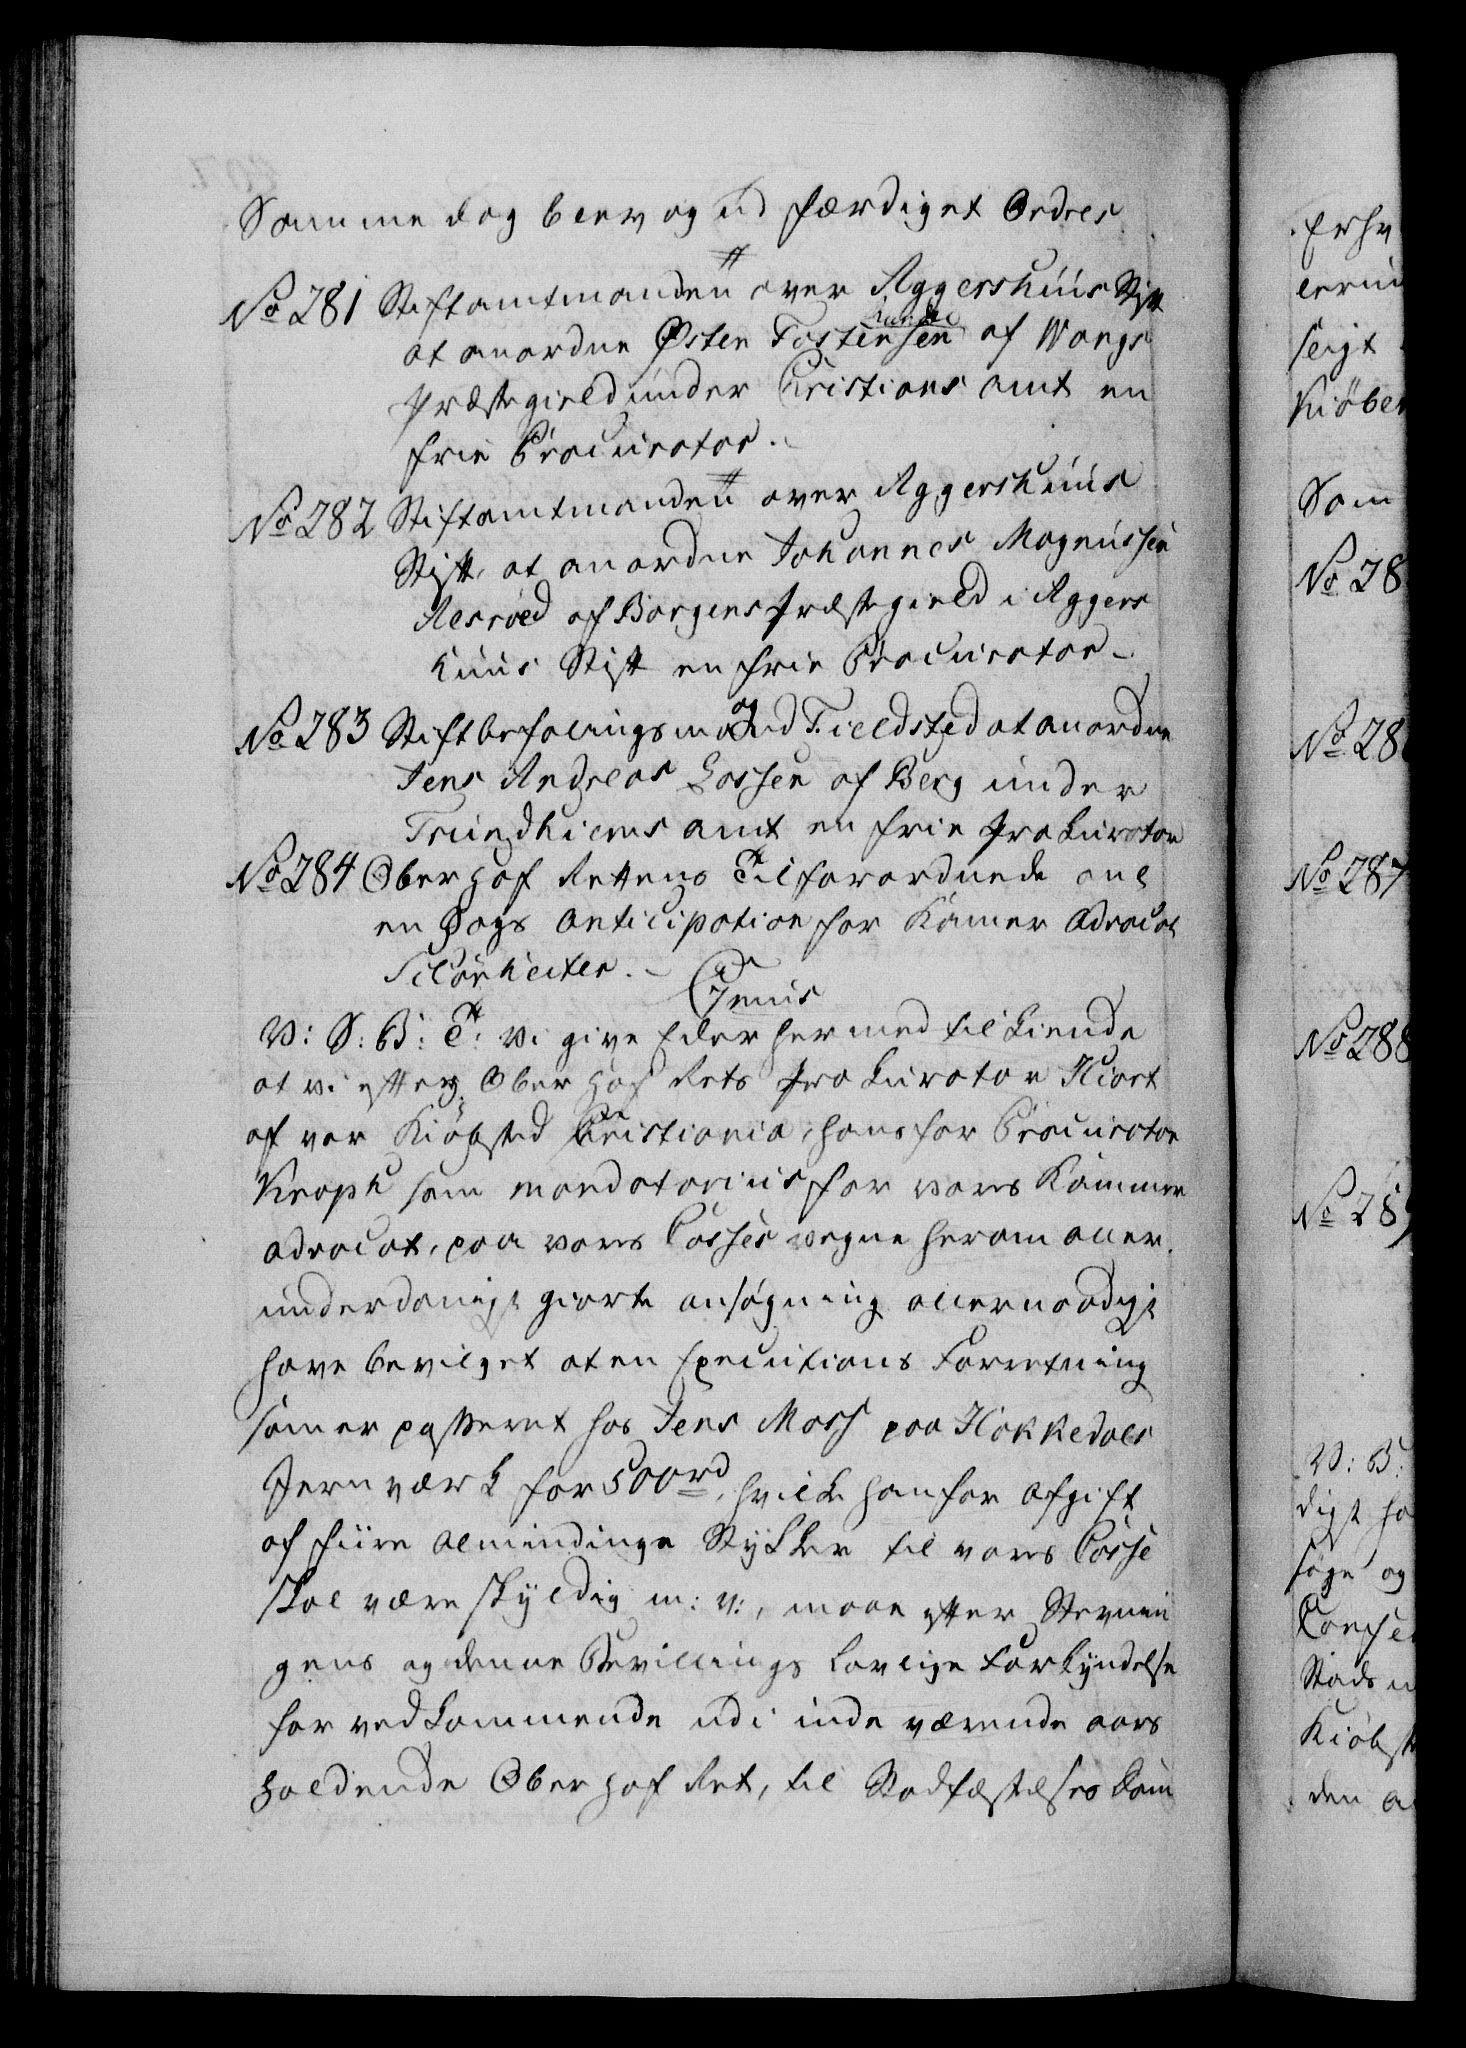 Samme dag blev og ud færdiget Ordres
No 281 Stiftamtmanden over Aggershuus Stift
at anordne Østen Tostensen Kunde af Wangs
Præstegield under Christians amt en
frie Procurator.
No 282 Stiftamtmanden over Aggershuus
Stift, at anordne Johannes Magnussen
Aesrød af Borgens Præstegield i Aggers
huus Stift en frie Procurator
No 283 Stiftbefalingsmand Fieldsted at anordne
Jens Andreas Lossen af Berg under
Trundhiems amt en frie Prokurator
No 284 Ober Hof Rettens Tilforordnede anl
en Dags Anticipation for Kamer Advocat
Schönheiter. –
Genus
V: S: B: T: Vi give Eder hermed til kiende
at vi efter Ober Hof Rets Prokurator Hiort
af vor Kiøbsted Christiania, hans for Procurator
Kraph som mandatarius for vores Kammer
advocat, paa vores Casses vegne herom aller
underdanigst giorte ansøgning allernaadigst
have bevilget at en Executions Forretning
som er passeret hos Jens Moss paa Hakkedals
Jernværk for 500 rd, hvilke han for Afgift
af fiire almindinge Stykker til vores Casse
skal være skyldig m: v:, maae efter Stevnin
gens og denne Bevillings lovlige Forkyndelse
for vedkommende udi inde værende aars
holdende Ober Hof Ret, til Stadfæstelses Dom
No 28
No 28
No 287
No 288
No 289